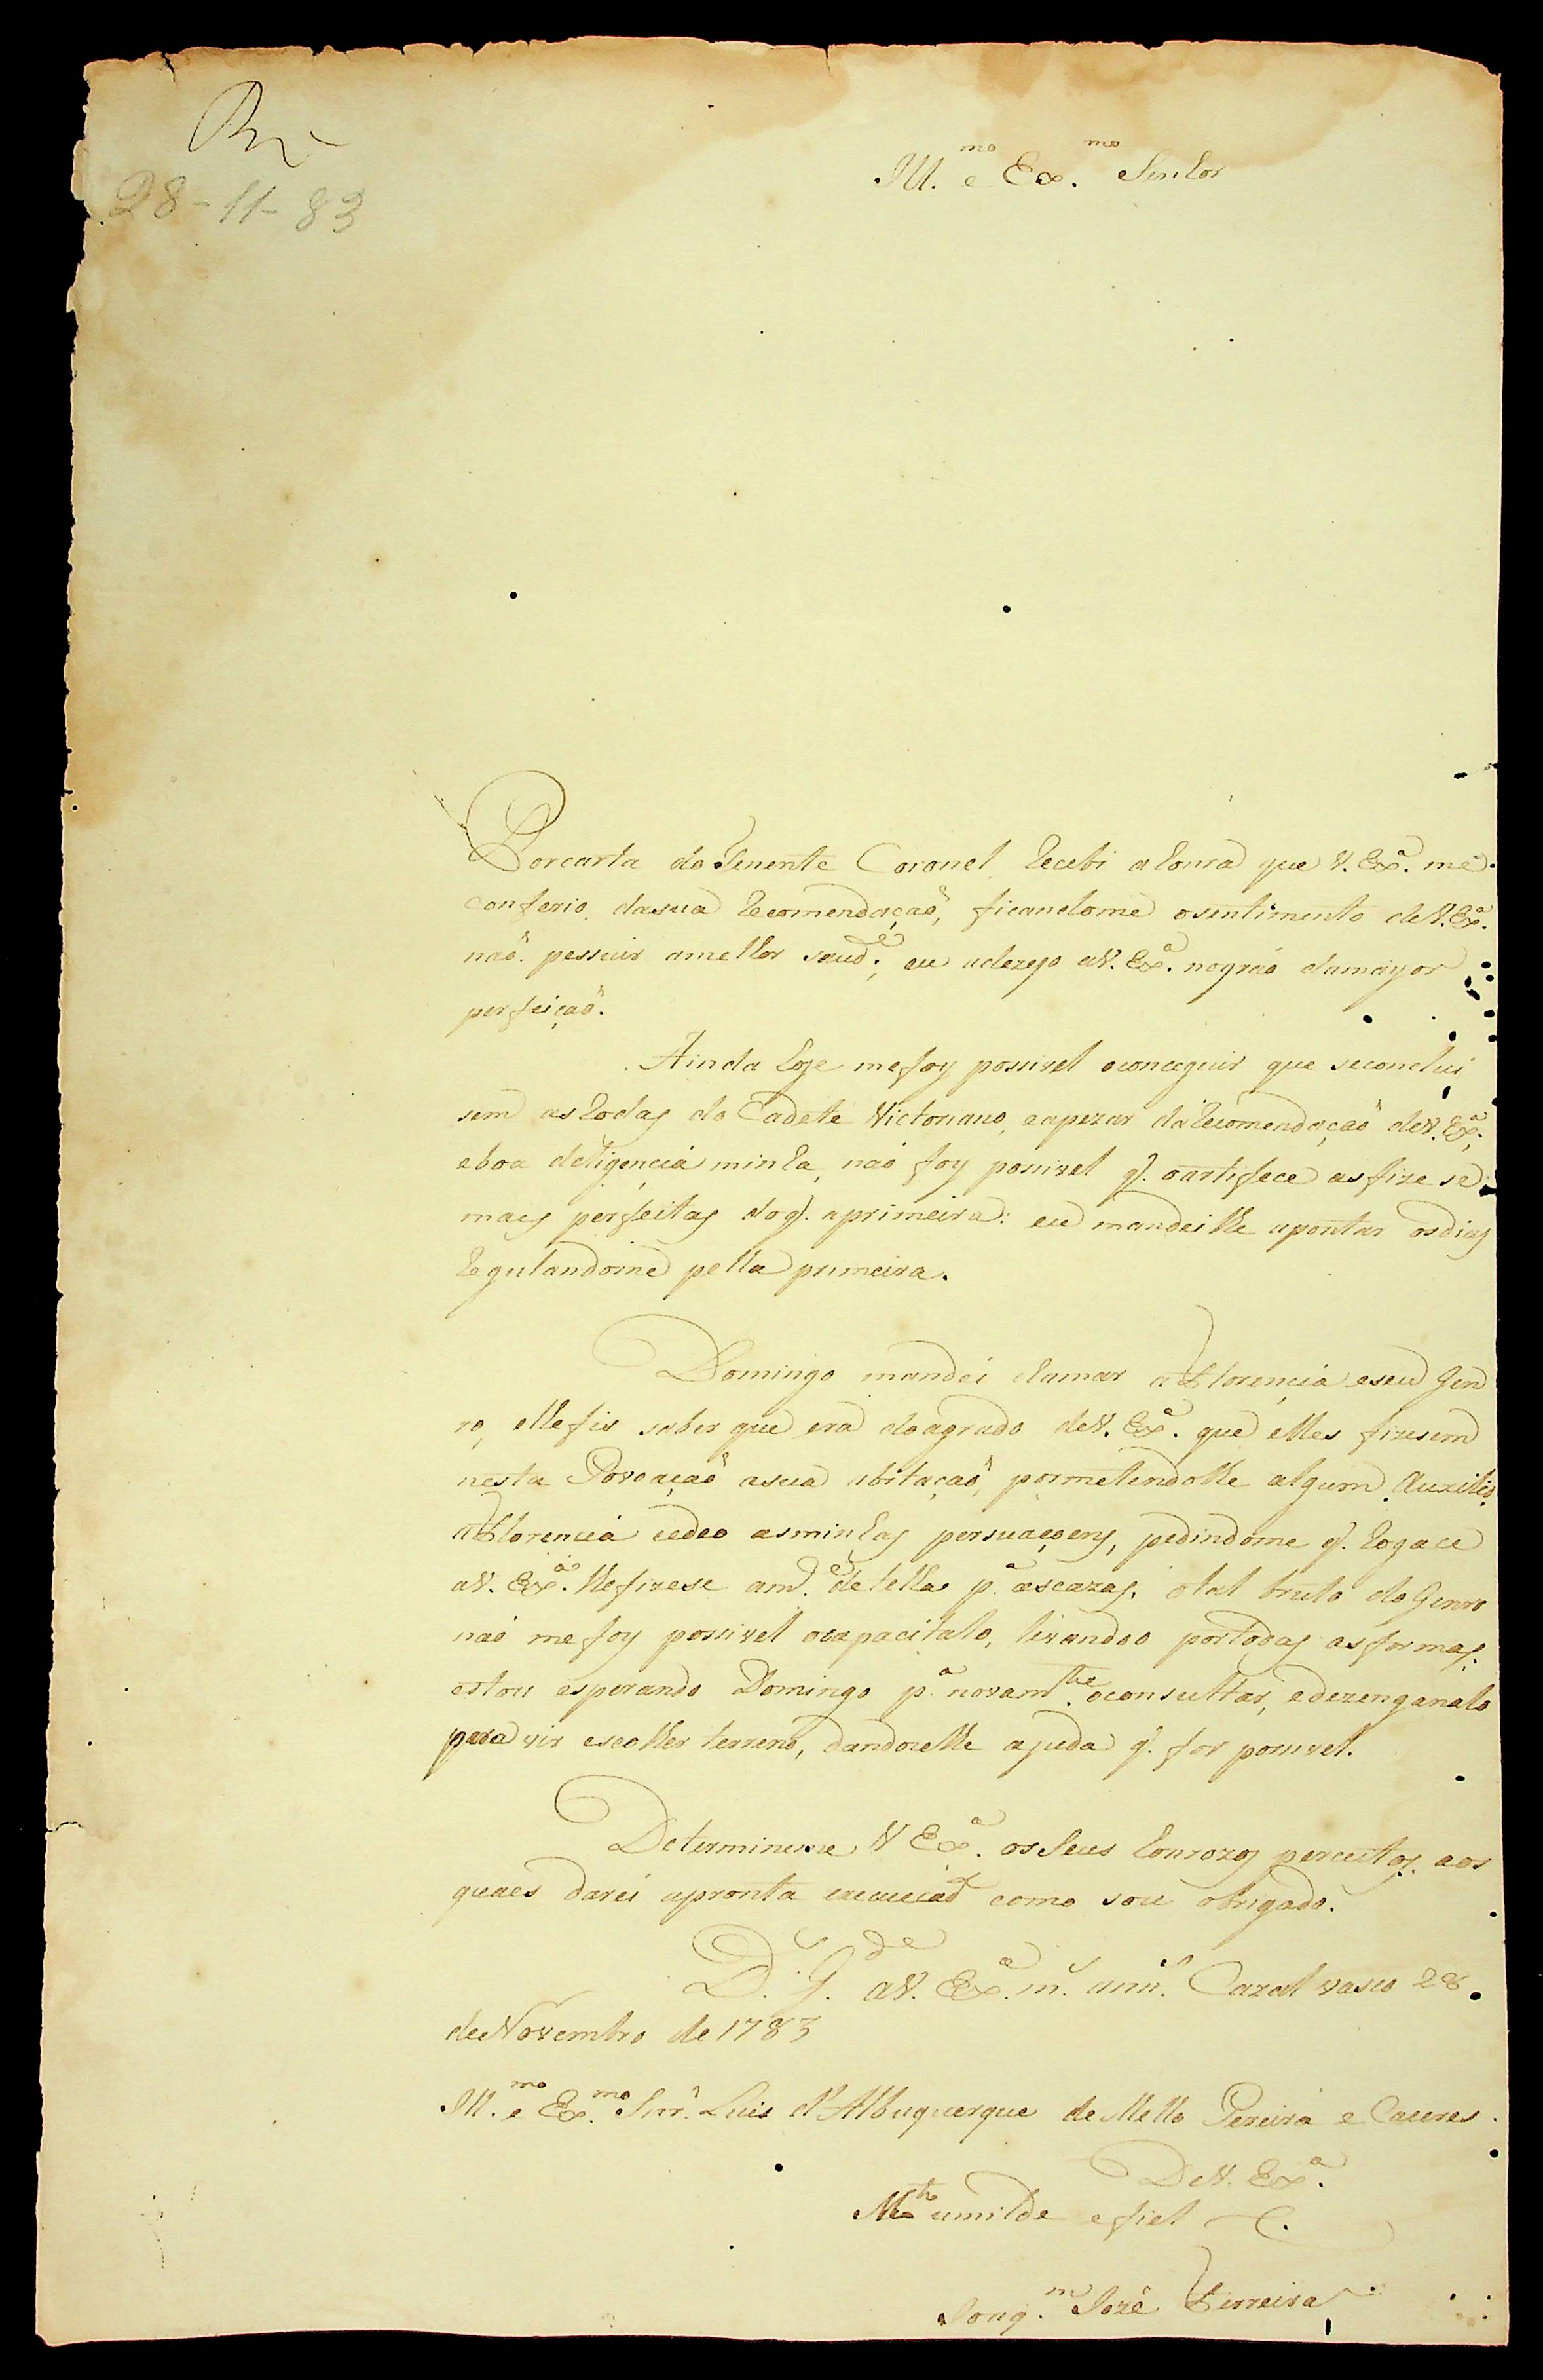 Rx
28-11-83
Ill.mo e Ex.mo Senhor
Por carta do Tenente Coronel Recebi a honra que V. Ex.a me
conferio da sua Recomendação, ficandome o sentimento de V. Ex.a
não pessuir a melhor saud.e, eu a dezejo a V. Ex.a no gráo da mayor
perfeição.
Ainda hoje me foy possivel o conceguir que se conclui
sem as Rodas do Cadete Victoriano, e apezar da Recomendação de V. Ex.a,
e boa deligencia minha, não foy possivel q. o artifece as fize se
maes perfeitas do q. a primeira: eu mandei lhe apontar os dias
Regulandome pella primeira.
Domingo mandei chamar a Florencia e seu Gen
ro, e lhe fis saber que era do agrado de V. Ex.a que elles fizesem
nesta Povoação a sua abitação, pormetendolhe algum Auxilio,
a Florencia cedeo as minhas persuaçoens, pedindome q. Rogace
a V. Ex.a lhe fizese a m.ce de tella p.a as cazas, o tal bruto do Genro
não me foy possivel o capacitalo, levandoo por todas as formas.
estou esperando Domingo p.a novam.te o consultar, e dezenganalo
para vir escolher terreno, dandoselhe ajuda q. for possivel.
Determineme V Ex.a os Seus honrozos perceitos, aos
quaes darei a pronta execucão como sou obrigado.
D.s G.de a V. Ex.a m.s ann.s Cazal vasco 28
de Novembro de 1783
Ill.mo e Ex.mo Snr. Luis d'Albuquerque de Mello Pereira e Caceres
De V. Ex.a
M.to umilde e fiel C.
Joaq.m Jozé Ferreira